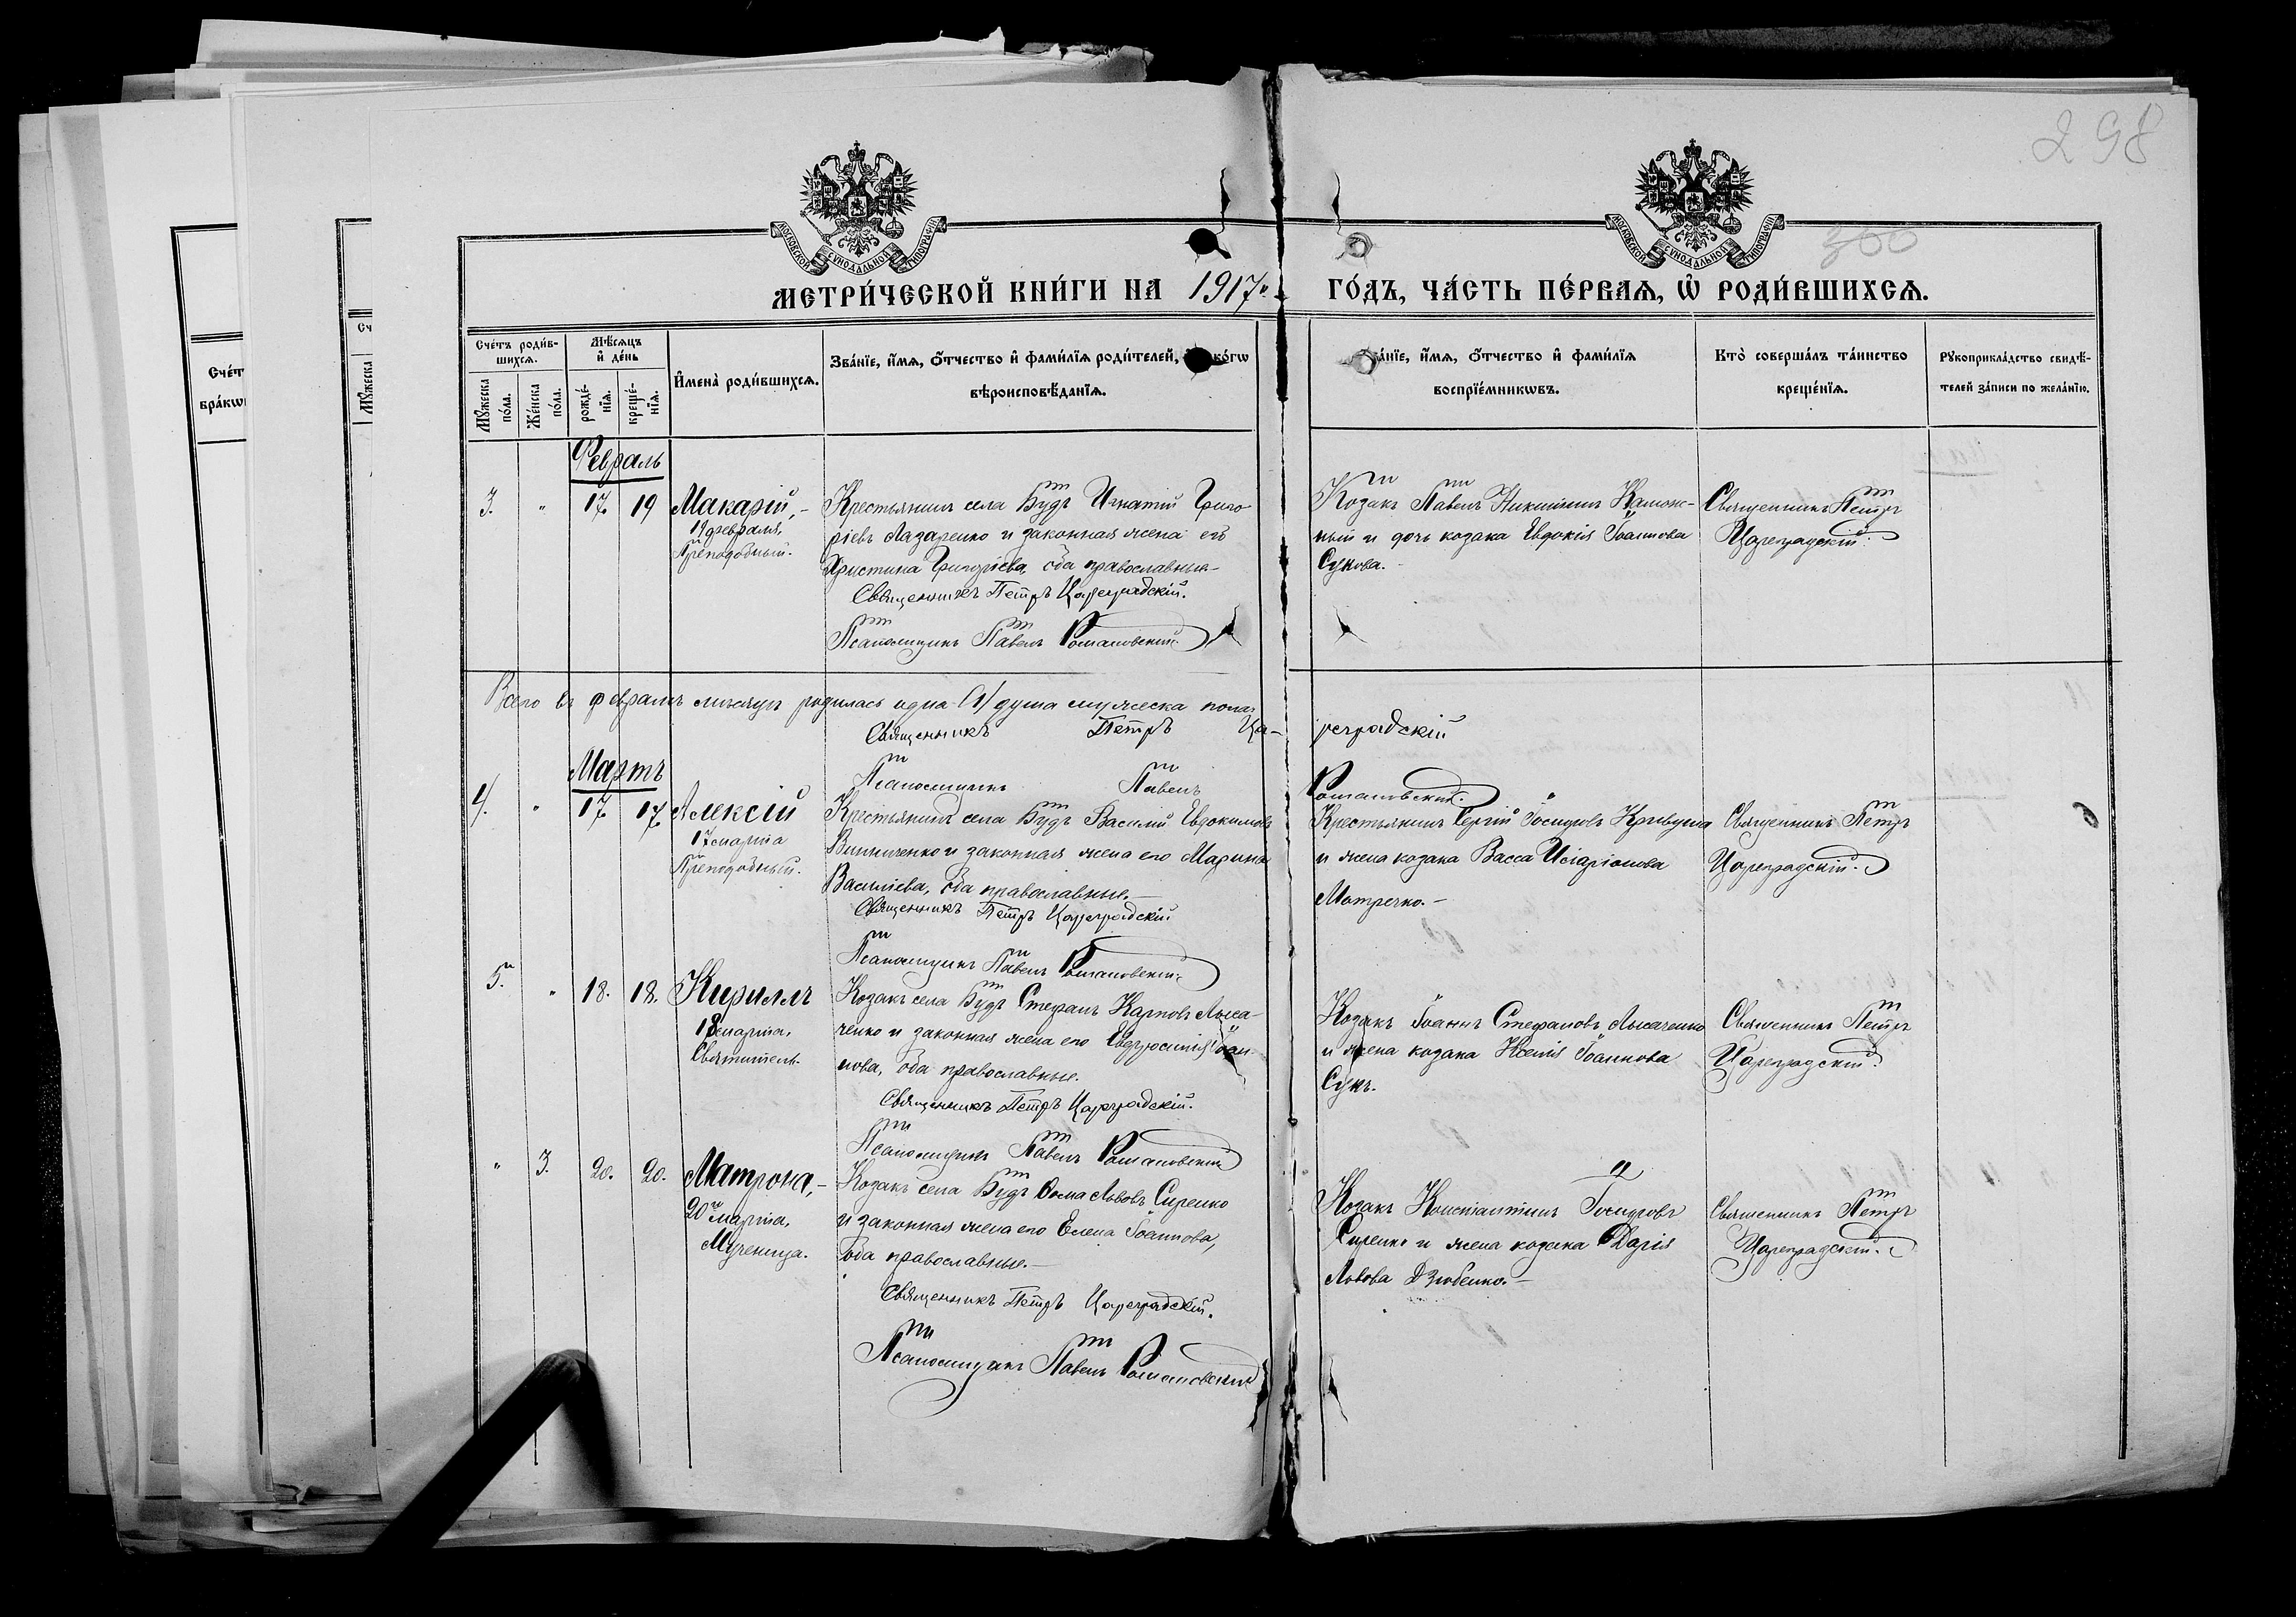 298
300
МОСКОВСКОЙ СѴНОДАЛЬНОЙ ТИПОГРАФІИ
МОСКОВСКОЙ СѴНОДАЛЬНОЙ ТИПОГРАФІИ
МЕТРИ́ЧЕСКОЙ КНИ́ГИ НА 1917 ГО́ДЪ, ЧА́СТЬ ПЕ́РВАѦ, Ѡ РОДИ́ВШИХСѦ.
Счéтъ роди́в-
шихсѧ.
Мꙋ́жеска
по́ла.
Же́нска
по́ла.
Мѣ́сѧцъ
и де́нь
рожде́-
нїѧ.
креще́-
нїѧ.
Имена̀ роди́вшихсѧ.
Зва́нїе, и́мѧ, о́тчество и фами́лїѧ роди́телей, ко́гѡ
вѣроисповѣ́данїѧ.
а́нїе, и́мѧ, о́тчество и фами́лїѧ
воспрїе́мникѡвъ.
Кто̀ соверша́лъ та́инство
креще́нїѧ.
Рꙋкоприкла́дство свидѣ́-
телей за́писи по жела́нїю.
Счéт
бра́кѡ
Сч
Мꙋ́жеска
Февраль
3. " 17. 19 Макарій,-
19 февраля,
Преподобный.
Крестьянинъ села Будъ Игнатій Григо
ріевъ Лазаренко и законная жена его
Христина Григоріева, оба православные.-
Священникъ Петръ Цареградскій.
Псаломщикъ Павелъ Романовскій.
Козакъ Павелъ Никитинъ
ный и дочь козака Евдокія Іоаннова
Сукова.-
Священникъ Петръ
Цареградскій.
Всего въ февралѣ мѣсяцѣ родилась одна (1) душа мужеска пола.
Священникъ Петръ Ца-реградскій
Псаломщикъ Павелъ Романовскій.
Мартъ
4. " 17. 17. Алексій
17 марта
Преподобный.
Крестьянинъ села Будъ Василій Евдокимовъ
Винниченко и законная жена его Марина
Васильева, оба православные.-
Священникъ Петръ Цареградскій
Псаломщикъ Павелъ Романовскій.
Крестьянинъ Сергій Іосифовъ Кривуша
и жена козака Васса
Матречко.-
Священникъ Петръ
Цареградскій.
5. " 18. 18. Кириллъ
18 марта,
Святитель.
Козакъ села Будъ Стефанъ Карповъ Лыса-
ченко и законная жена его Евфросинія Іоан-
нова, оба православные.
Священникъ Петръ Цареградскій.
Псаломщикъ Павелъ Романовскій
Козакъ Іоаннъ Стефановъ Лысаченко
и жена козака Ксенія Іоаннова
Сукъ.
Священникъ Петръ
Цареградскій.
" 3. 20. 20. Матрона,-
20 марта,
Мученица.
Козакъ села Будъ Ѳома Львовъ Сиренко
и законная жена его Елена Іоаннова,
оба православные.-
Священникъ Петръ Цареградскій.
Псаломщикъ Павелъ Романовскій
Козакъ Константинъ Іосифовъ
Сиренко и жена козака Дарія
Львова Дзюбенко.-
Священникъ Петръ
Цареградскій.